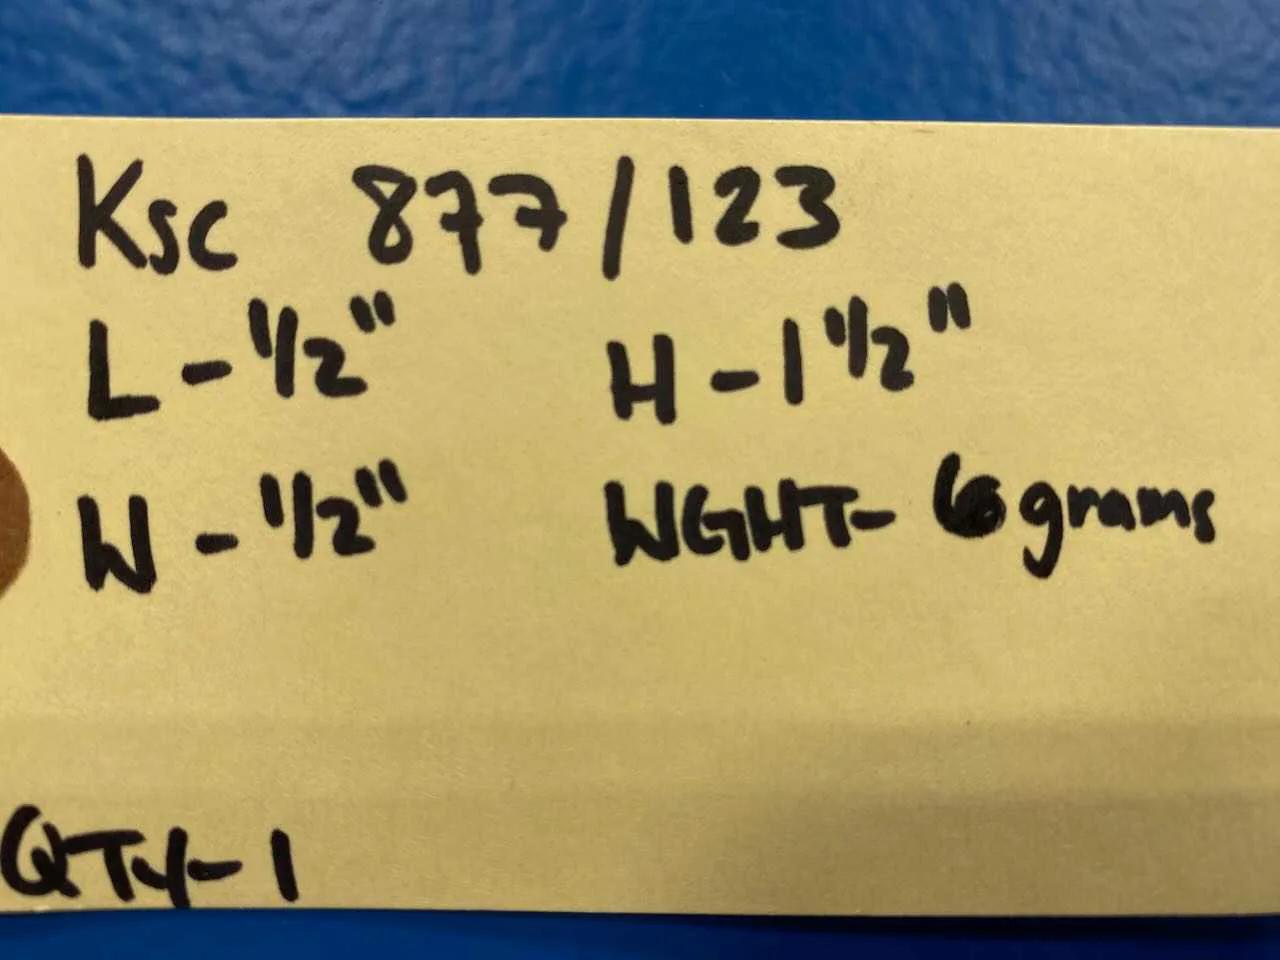 Ksc 877/123
L - 1/2" H - 1 1/2"
W - 1/2" WGHT- 6 grams
QTY- 1